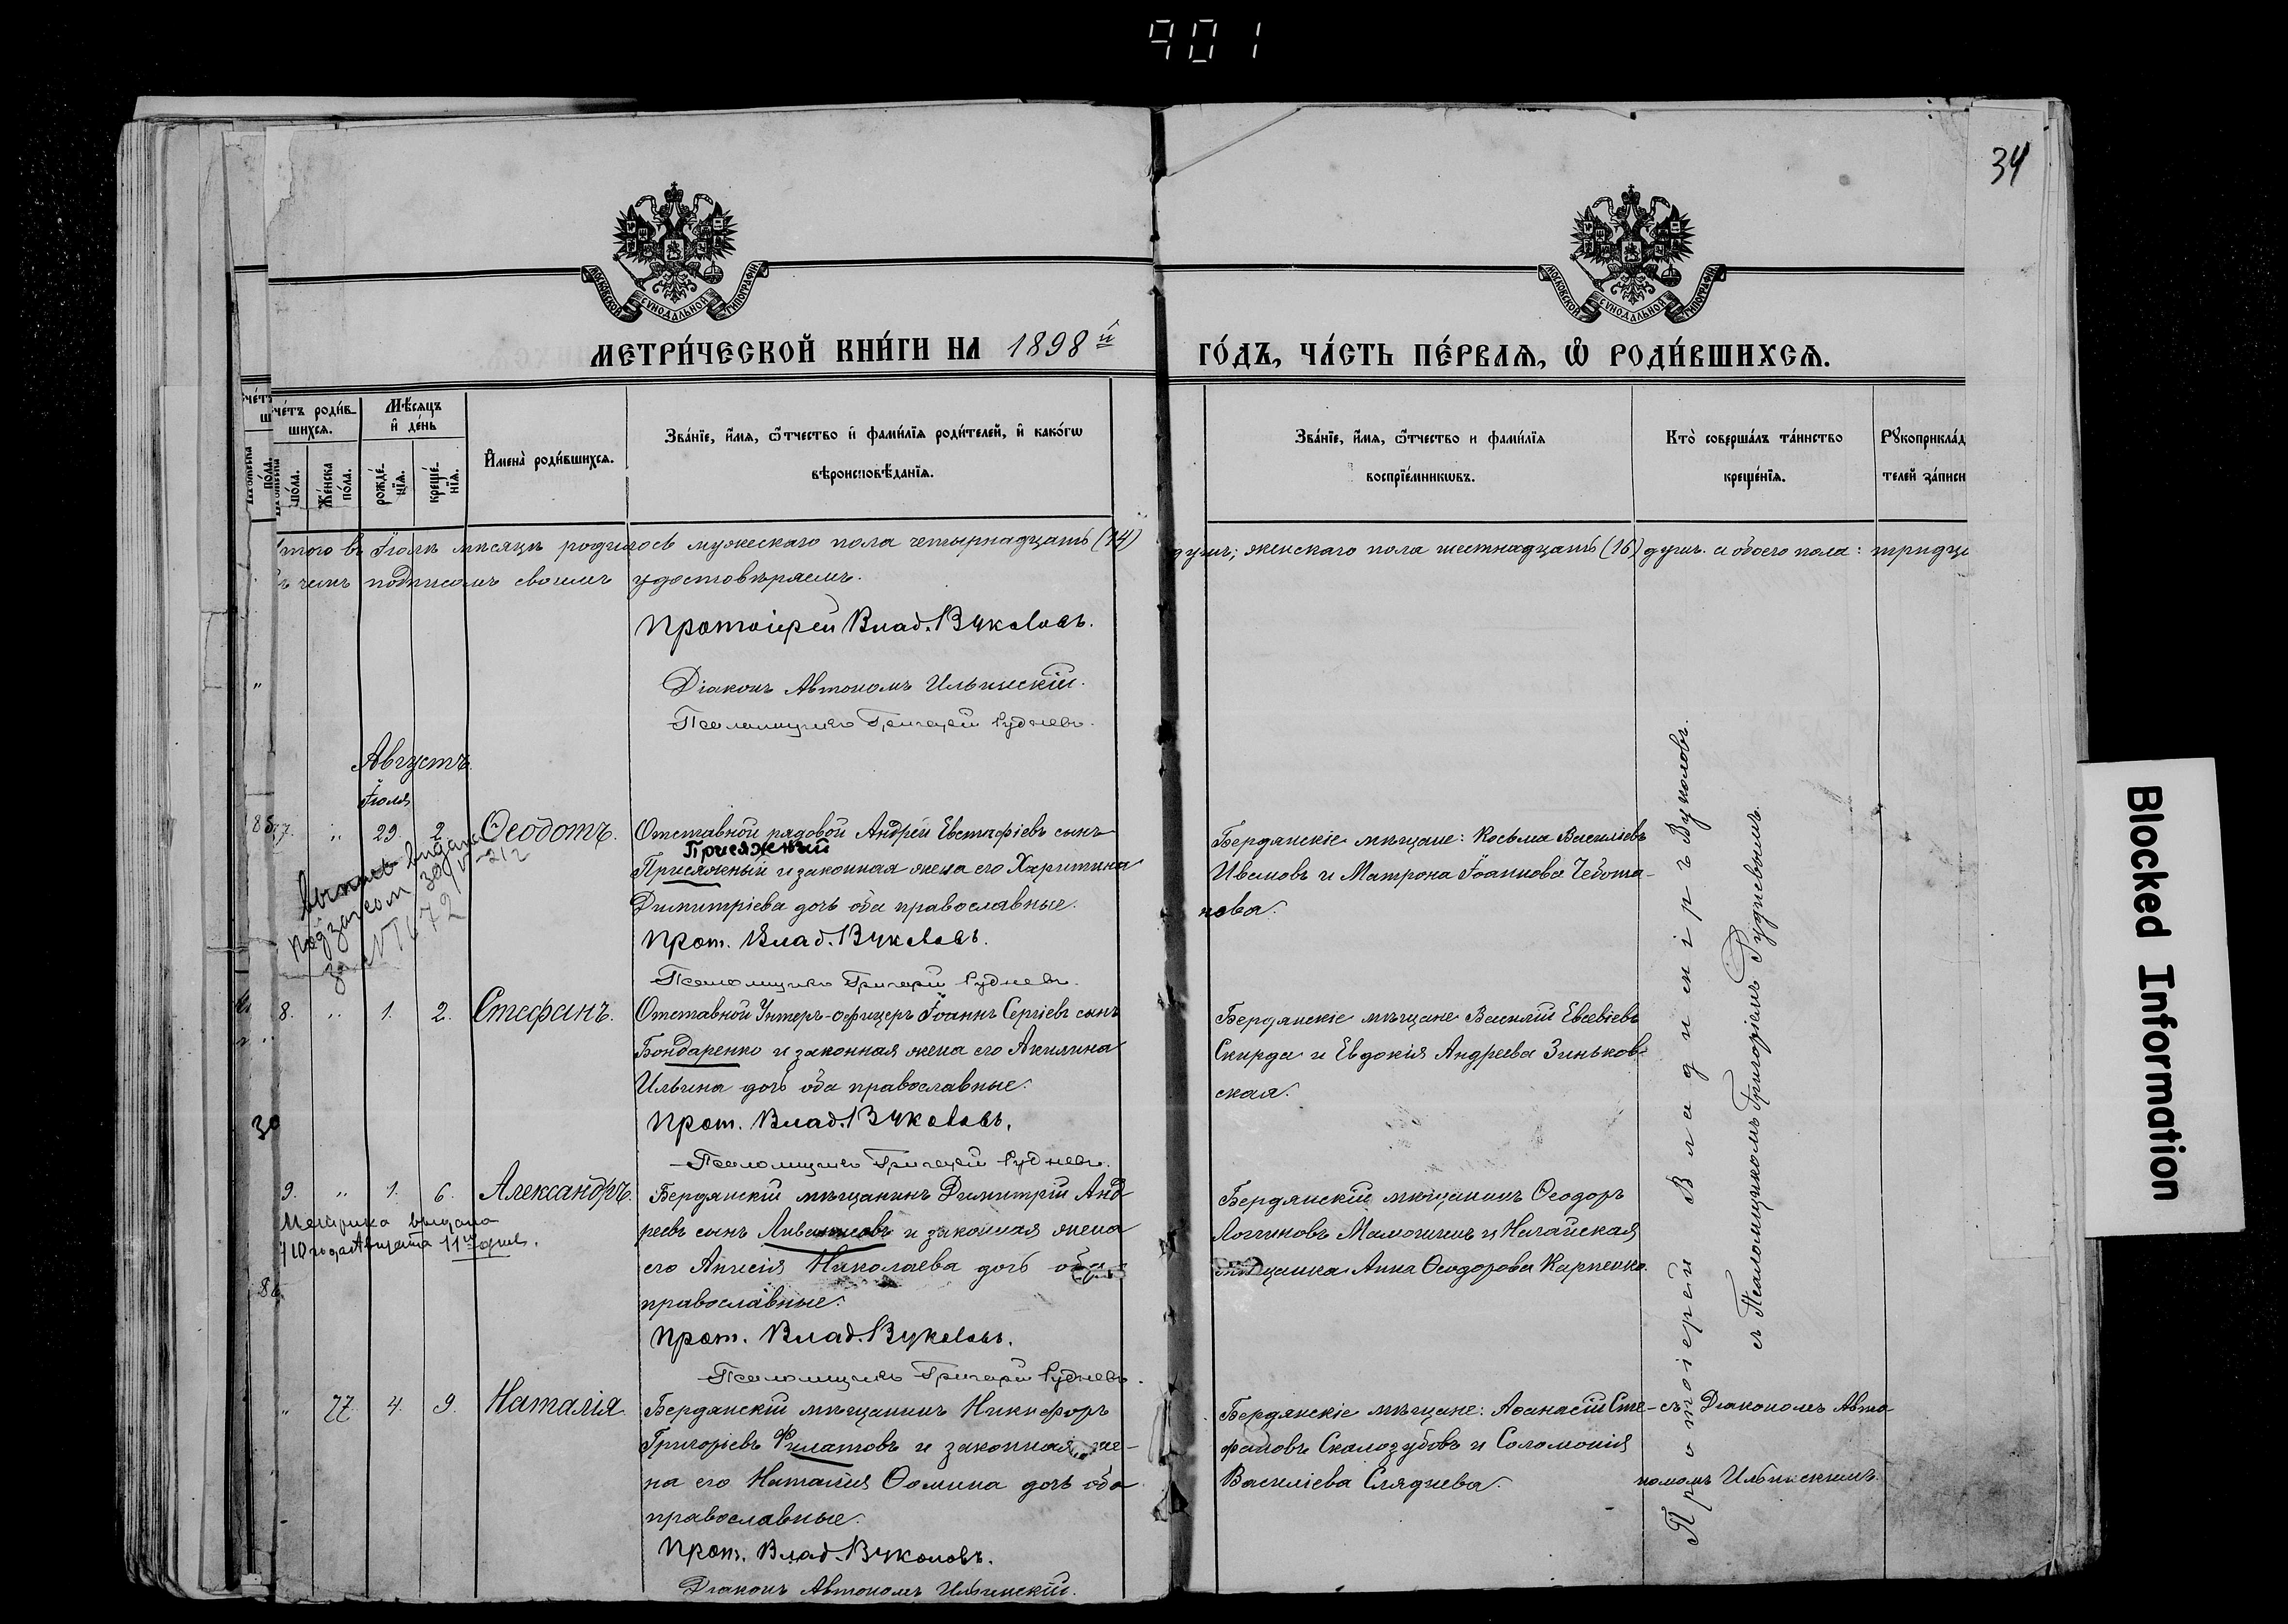 901
34
МОСКОВСКОЙ СѴНОДАЛЬНОЙ ТИПОГРАФІИ.
МОСКОВСКОЙ СѴНОДАЛЬНОЙ ТИПОГРАФІИ.
МЕТРИ́ЧЕСКОЙ КНИ́ГИ НА 1898й
ГО́ДЪ, ЧА́СТЬ ПЕ́РВАѦ, Ѽ РОДИ́ВШИХСѦ.
че́тъ роди́в-
шихсѧ.
пóла.
Же́нска
пóла.
Мѣ́сѧцъ
и҆ де́нь
рожде́-
нїѧ.
креще́-
нїѧ.
И҆мена̀ роди́вшихсѧ.
Зва́нїе, и҆́мѧ, ѻ҆́тчество и҆ фами́лїѧ роди́телей, и҆ како́гѡ
вѣроисповѣ́данїѧ.
Зва́нїе, и҆́мѧ, ѻ҆́тчество и фами́лїѧ
воспрїе́мникѡвъ.
Кто̀ соверша́лъ та́инство
креще́нїѧ.
Рꙋкоприкла́д
телей за́писи
того въ Іюлѣ мѣсяцѣ родилось мужескаго пола четырнадцать (14)
душъ; женскаго пола шестнадцать (16) душъ. а обоего пола: тридца
чемъ подписомъ своимъ удостовѣряемъ.
Протоіерей Влад. Вуколовъ.
Діаконъ Автономъ Ильинскій.
Псаломщикъ Григорій Рудневъ.
Августъ.
Іюля
77. " 29. 2. Ѳеодотъ.
Отставной рядовой Андрей Евстафіевъ сынъ
Присяжный
Присяжный и законная жена его Харитина
Димитріева дочь оба православные.
Прот. Влад. Вуколовъ.
Псаломщикъ Григорій Рудневъ.
Бердянскіе мѣщане: Косьма Василіевъ
Ивановъ и Матрона Іоаннова Чебота-
рева.
выпись видана
под загсом 30/VI-212
за №1672
8. " 1. 2. Стефанъ.
Отставной Унтеръ-офицеръ Іоаннъ Сергіевъ сынъ
Бондаренко и законная жена его Акилина
Ильина дочь оба православные.
Прот. Влад. Вуколовъ.
Псаломщикъ Григорій Рудневъ.
Бердянскіе мѣщане Василій Евсевіевъ
Скирда и Евдокія Андреева Зиньков-
ская.
30
9. " 1. 6. Александръ.
Метрика выдана
910 года Августа 11го дня.
Бердянскій мѣщанинъ Димитрій Анд
реевъ сынъ Ливанцовъ и законная жена
его Анисія Николаева дочь оба
православные.
Прот. Влад. Вуколовъ.
Псаломщикъ Григорій Рудневъ.
Бердянскій мѣщанинъ Ѳеодоръ
Логиновъ и Ногайская
мѣщанка Анна Ѳеодорова Карпенко.
" 77 4. 9. Наталія.
Бердянскій мѣщанинъ Никифоръ
Григоріевъ Филатовъ и законная же-
на его Наталія Ѳомина дочь оба
православные.
Прот. Влад. Вуколовъ.
Діаконъ Автономъ Ильинскій.
Бердянскіе мѣщане: Аѳанасій Сте-
фановъ Скалозубовъ и Соломонія
Василіева Сляднева.
съ Діакономъ Авто-
номомъ Ильинскимъ.
Протоіерей Владиміръ Вуколовъ.
съ Псаломщикомъ Григоріемъ Рудневымъ.
Blocked Information